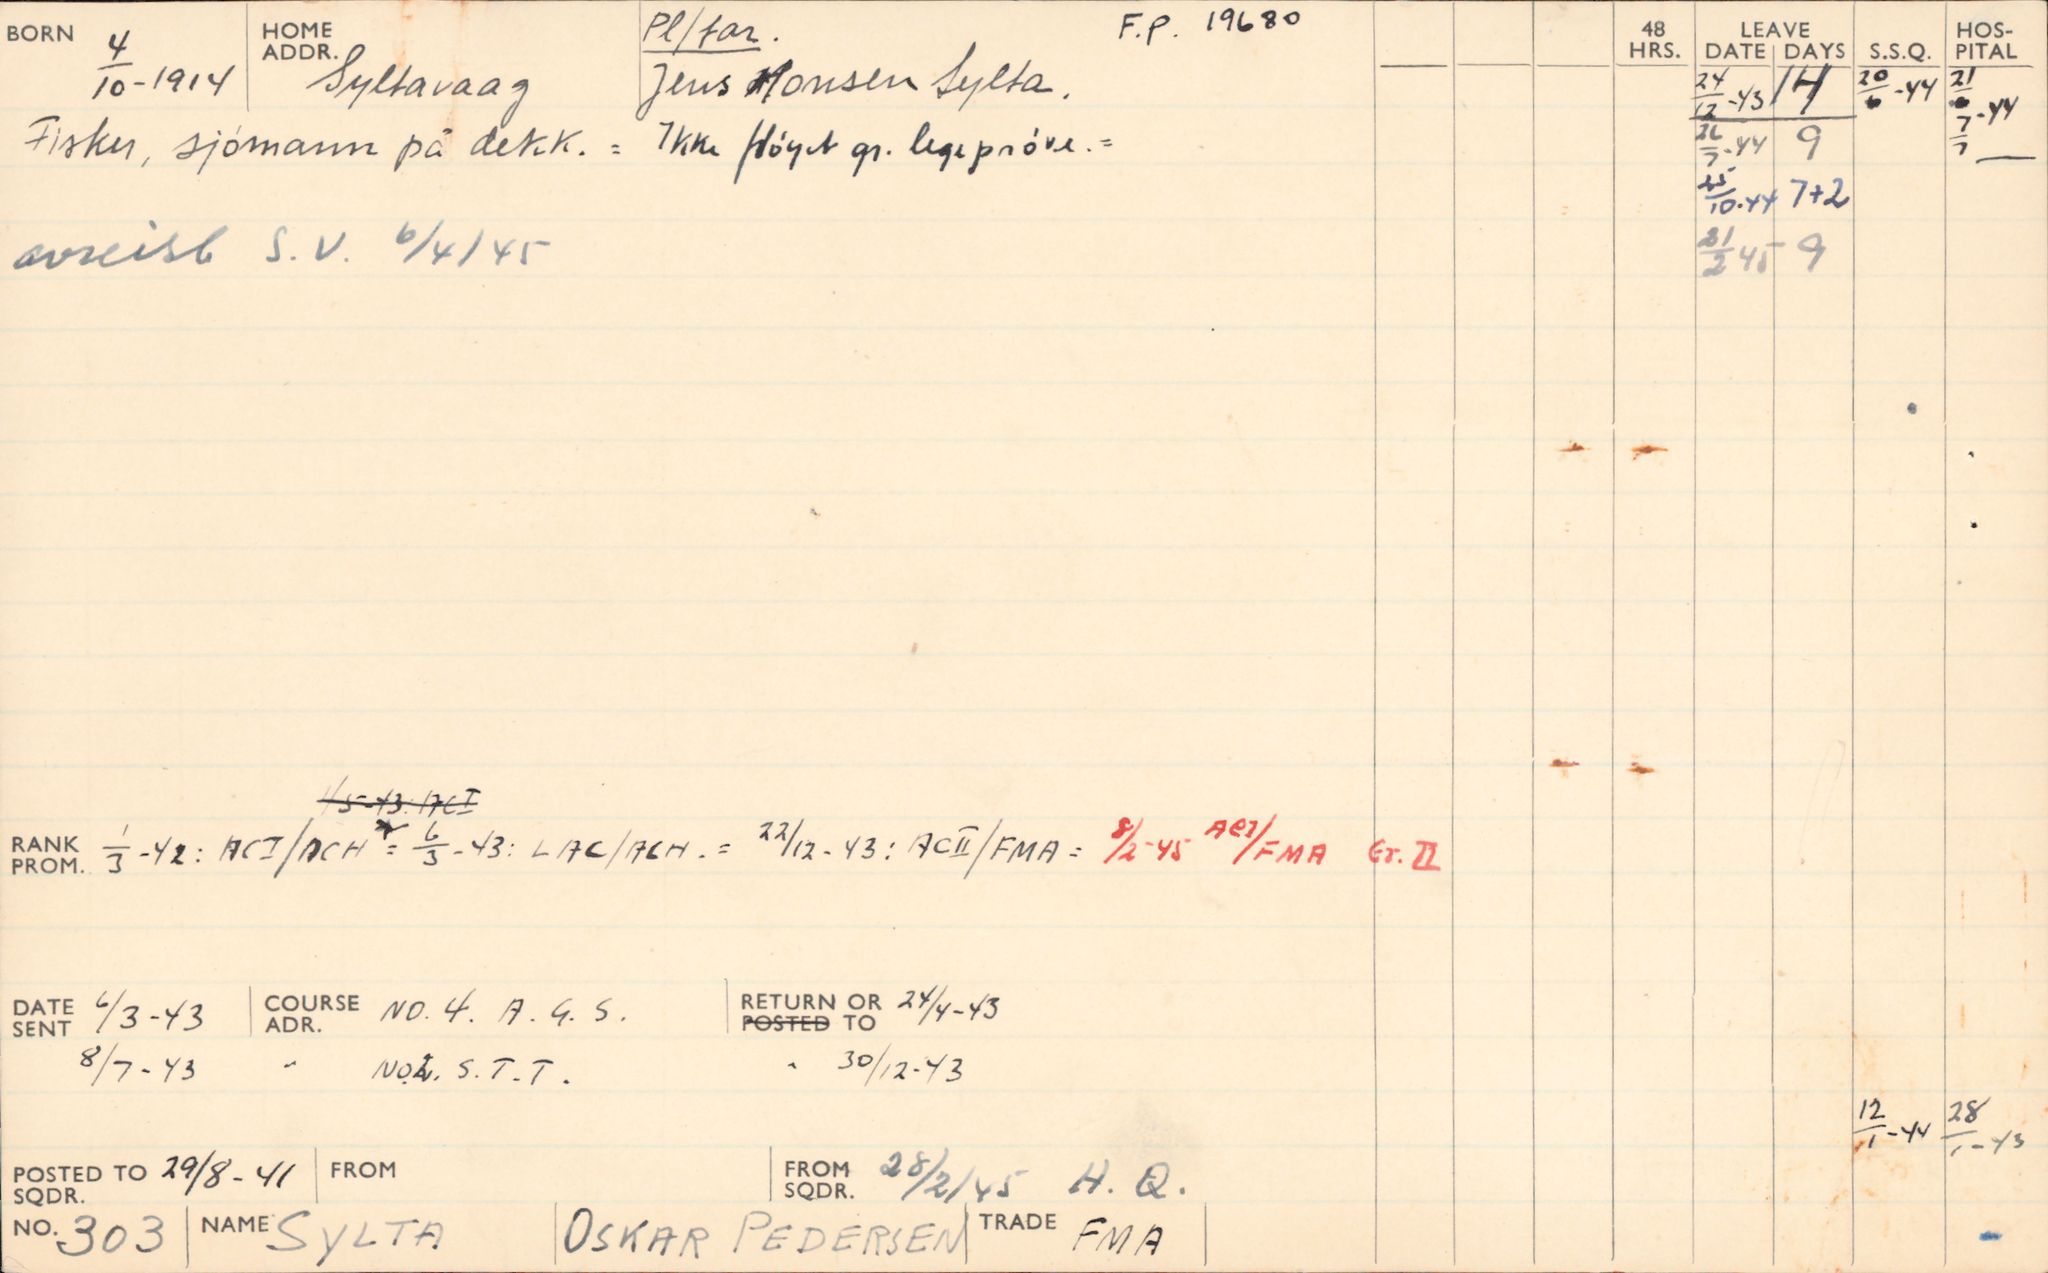 BORN 4/10-1914 HOME ADDR. Syltavaag Pl/far. Jens Monsen Sylta. F.P. 19680
48 HRS. LEAVE DATE DAYS S.S.Q. HOSPITAL
24/12-43 14 20/6-44 21/6-44
7/7
Fisker, sjømann på dekk. = Ikke fløyet gr. legeprøve. =
26/7-44 9
25/10-44 7+2
avreist S.V. 6/4/45
21/2 45 9
1/5-43: ACI
RANK PROM. 1/3-42: ACI/ACH = 6/3-43: LAC/ACH. = 22/12-43: ACII/FMA = 8/2-45 AC1/FMA Gr. II
DATE SENT 6/3-43 COURSE ADR. NO. 4. A.G.S. RETURN OR POSTED TO 24/4-43
8/7-43 " S.T.T. " 30/12-43
12/1-44 28/1-43
POSTED TO SQDR. 29/8-41 FROM FROM SQDR. 28/2/45 H.Q.
NO. 303 NAME SYLTA OSKAR PEDERSEN TRADE FMA